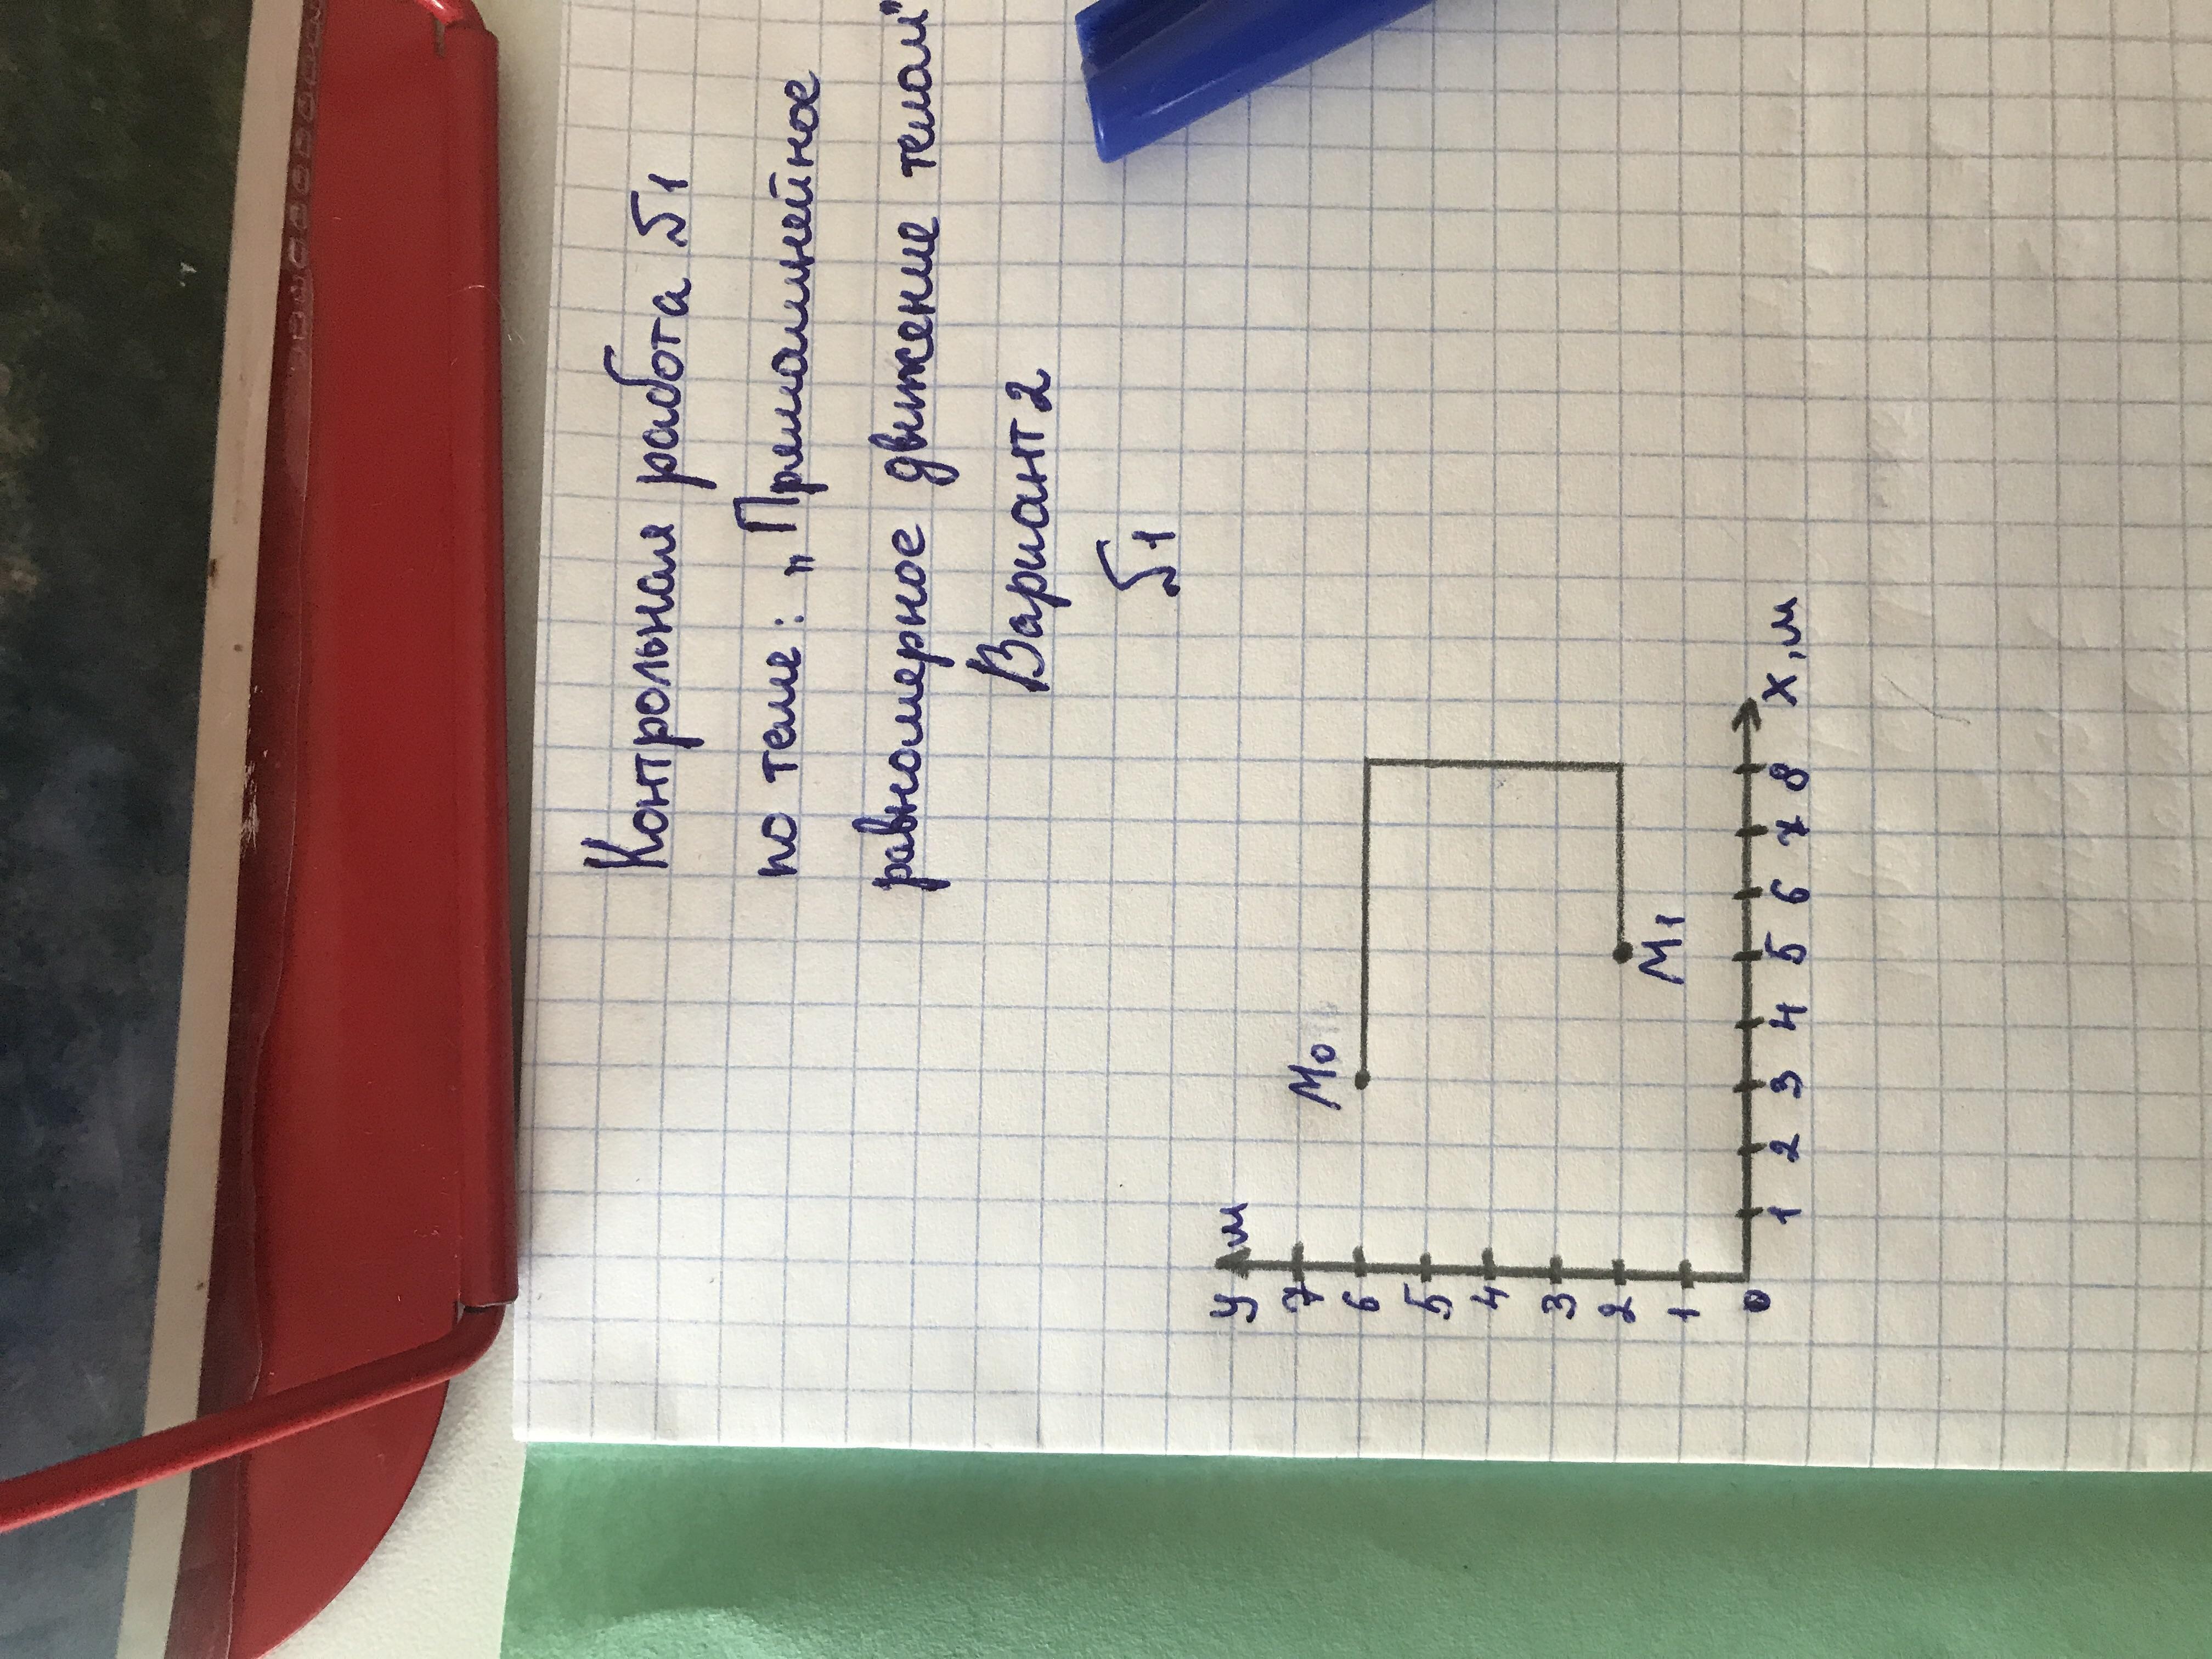 Контрольная работа №1
по теме: „Прямолинейное
равномерное движение телом”
Вариант 2
№1
y м
7
6
5
4
3
2
1
0
M0
M1
1 2 3 4 5 6 7 8 X, м